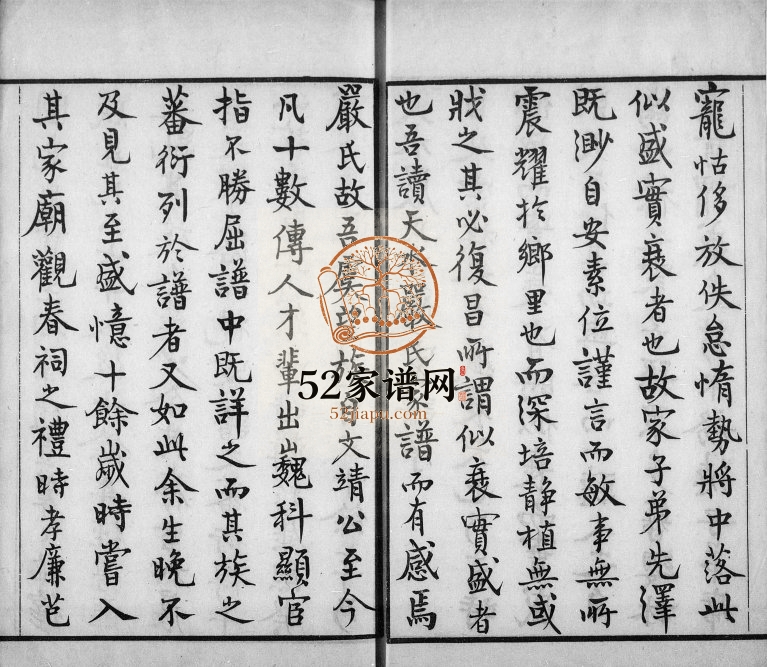 寵怙侈放佚怠惰勢將中落此
似盛實衰者也故家子弟先澤
既渺自安素位謹言而敏事無所
震耀於鄉里也而深培静植無或
戕之其必復昌所謂似衰實盛者
也吾讀天水嚴氏家譜而有感焉
嚴氏故吾虞望族自文靖公至今
凡十數傳人才輩出巍科顯官
指不勝屈譜中既詳之而其族之
蕃衍列於譜者又如此余生晚不
及見其至盛憶十餘嵗時嘗入
其家廟觀春祠之禮時孝廉芑
52家谱网
52jiapu.com